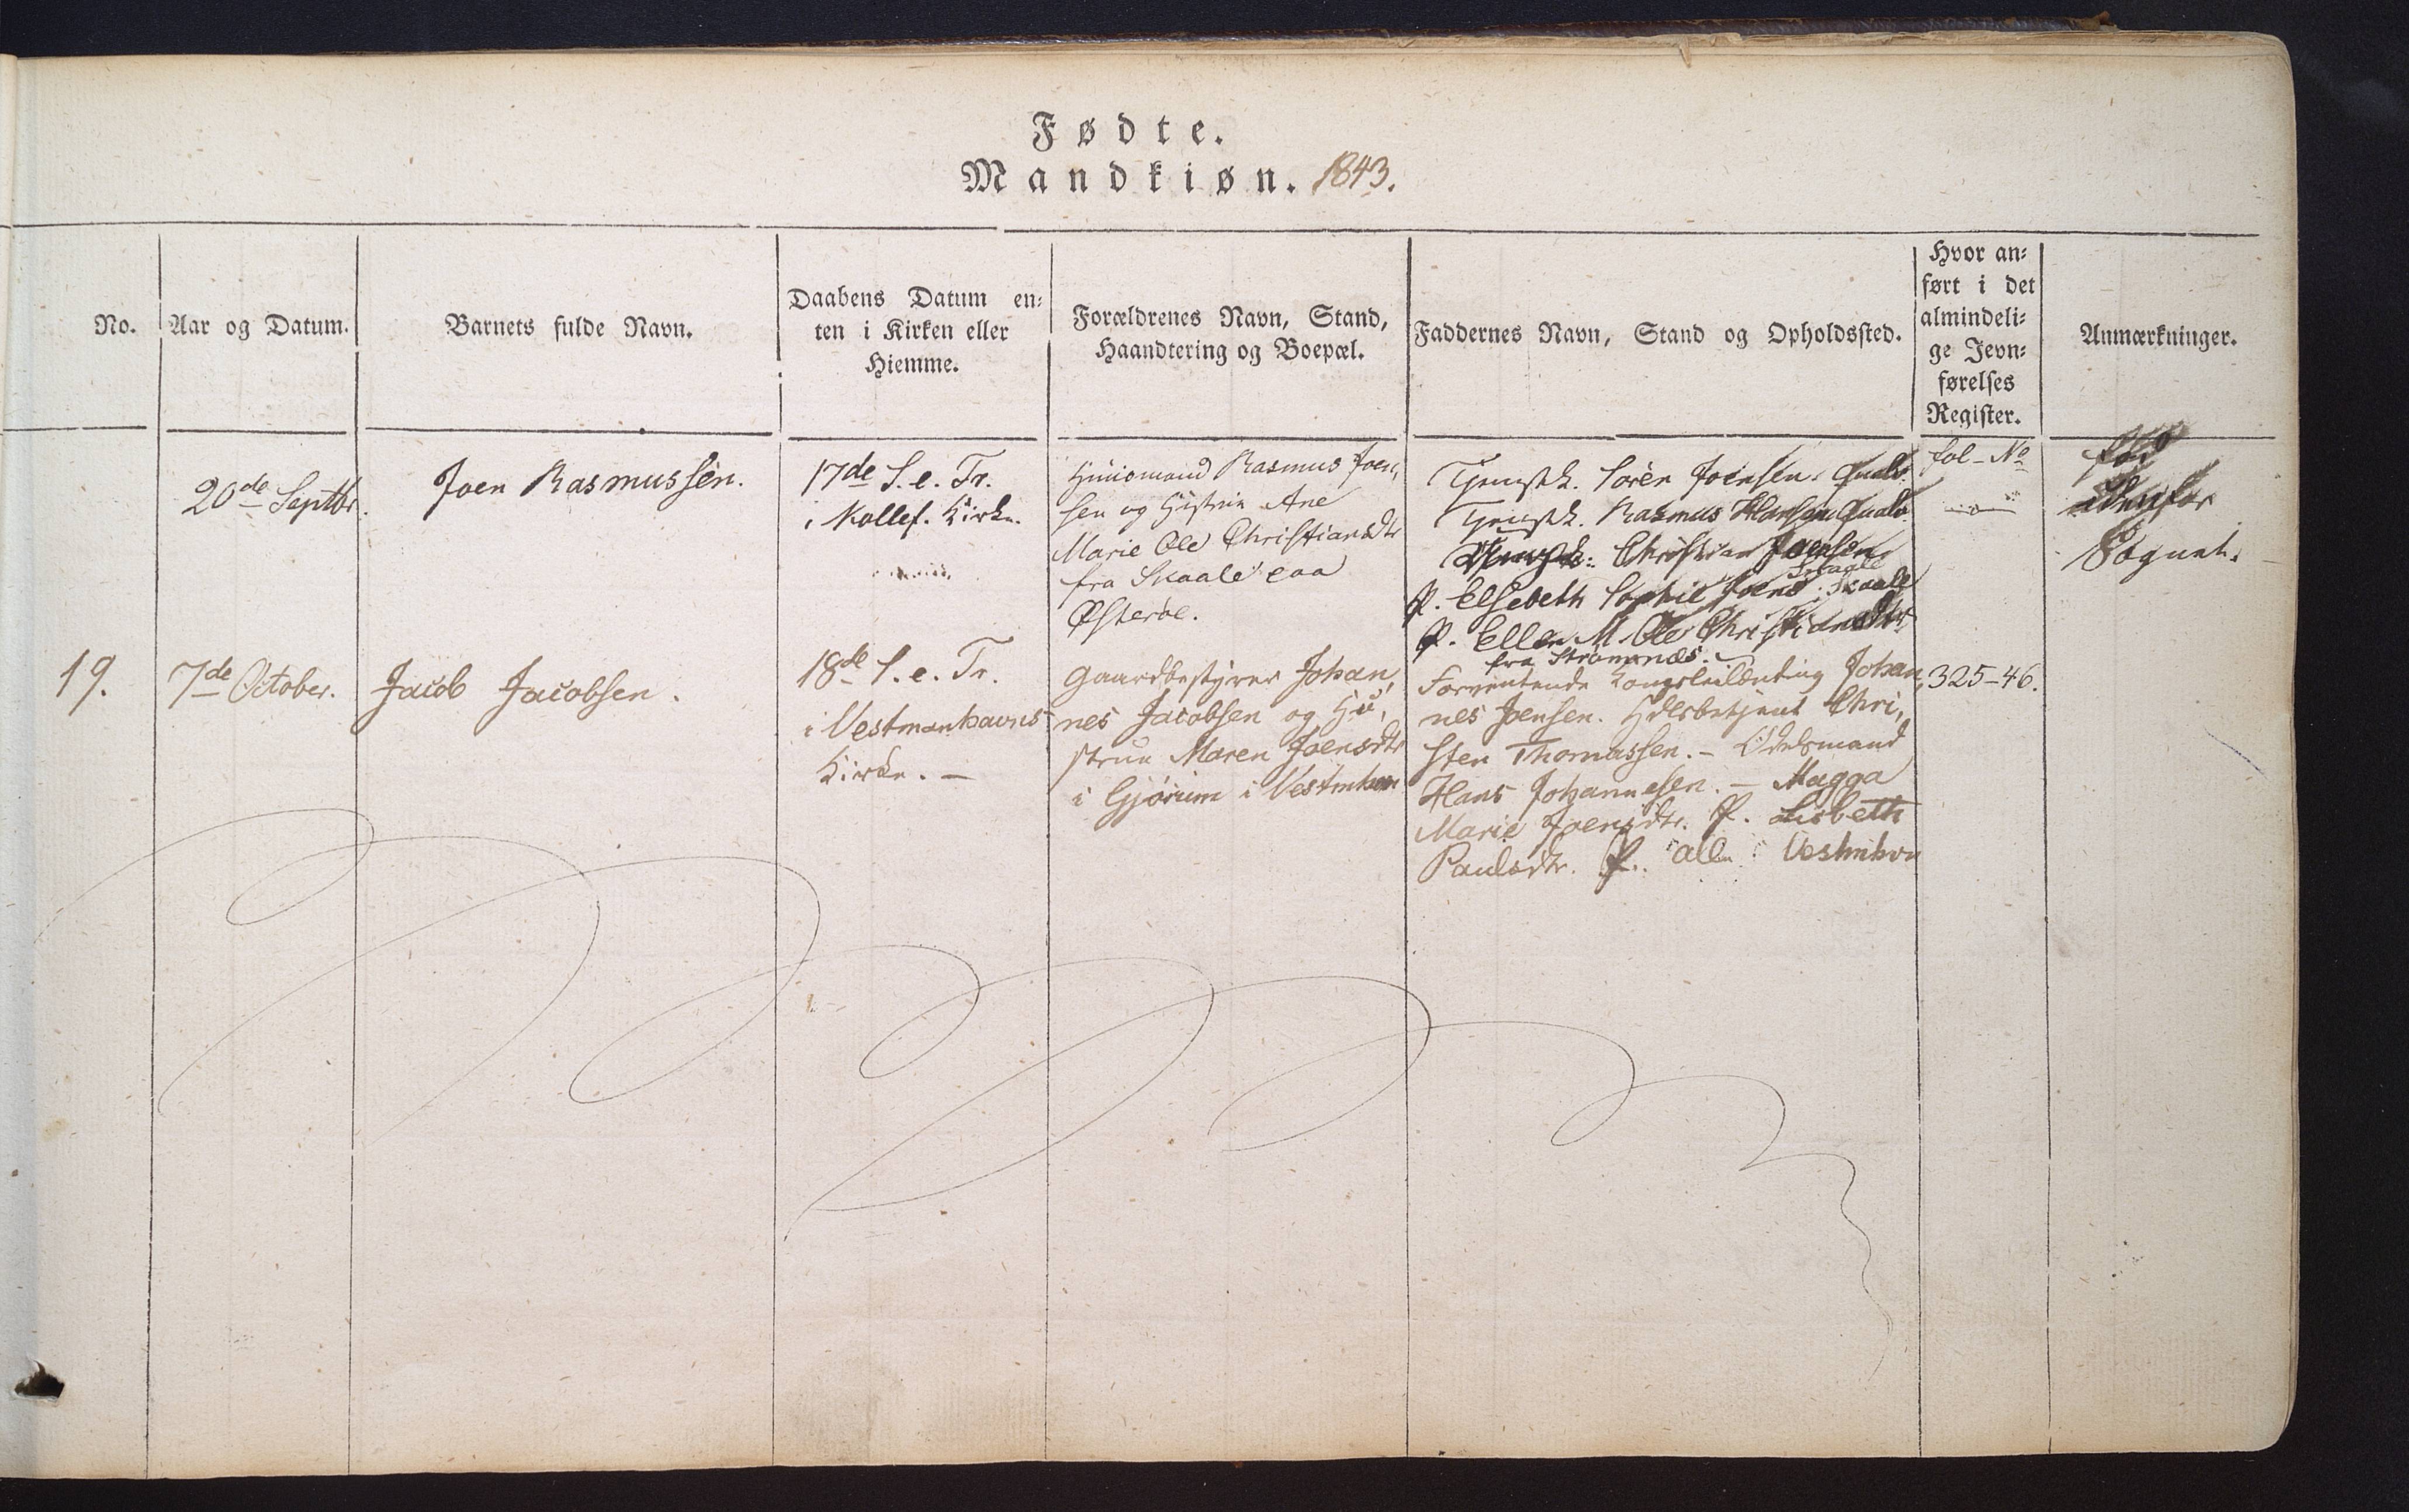 Fødte.
Mandkiøn. 1843.
No.
Aar og Datum.
Barnets fulde Navn.
Daabens Datum en-
ten i Kirken eller
Hiemme.
Forældrenes Navn, Stand,
Haandtering og Boepæl.
Faddernes Navn, Stand og Opholdssted.
Hvor an-
ført i det
almindeli-
ge Jevn-
førelses
Register.
Anmærkninger.
20de Septbr.
Joen Rasmussen.
17de S. e. Tr.
i Kollef. Kirke.
Huusmand Rasmus Joen,
sen og Hustrue Ane
Marie Ole Christiansdtr
fra Skaale paa
Østerøe.
Tjenestk. Sören Joensen. Qualv.
Tjenestk. Rasmus Hansen Qualv.
Christian Joensen
Skaale
P. Elsebeth Sophie Joens. Skaale
P. Ellen M. Ole Christiansdtr
fra Strömnæs.
fol - No
Født
Udenfor
Sognet.
19.
7de October.
Jacob Jacobsen.
18de S. e. Tr.
i Vestmanhavns
Kirke. -
Gaardbestyrer Johan,
nes Jacobsen og Hu,
strue Maren Joensdtr
i Gjørum i Vestmhvn
Forventende Kongsleilænding Johan,
nes Joensen. Hdlsbetjent Chri,
sten Thomassen. - Odelsmand
Hans Johannesen. - Magga
Marie Joensdtr. P. Lisbeth
Paulsdtr. P. alle i Vestmhvn
325-46.